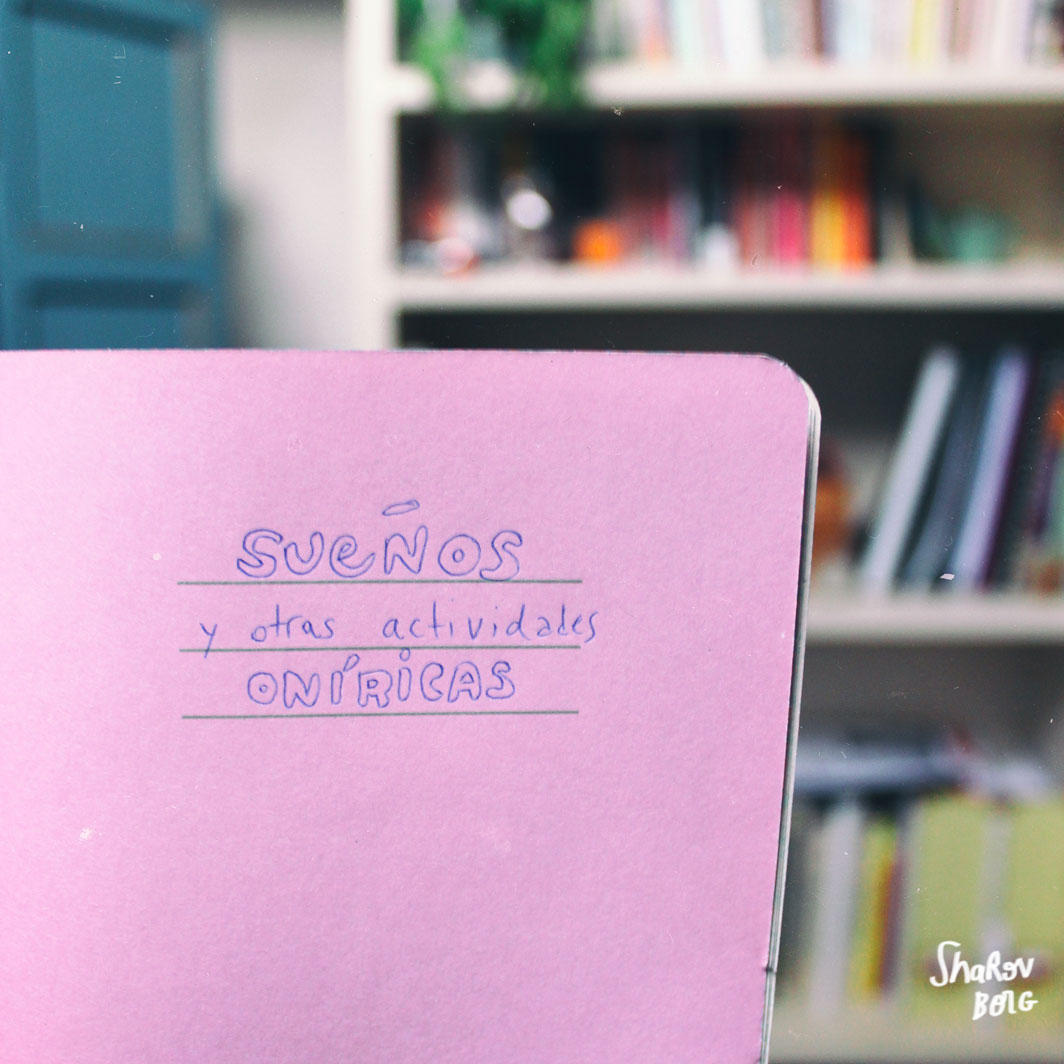 SUEÑOS
y otras actividades
ONÍRICAS
ShaRon
BORG